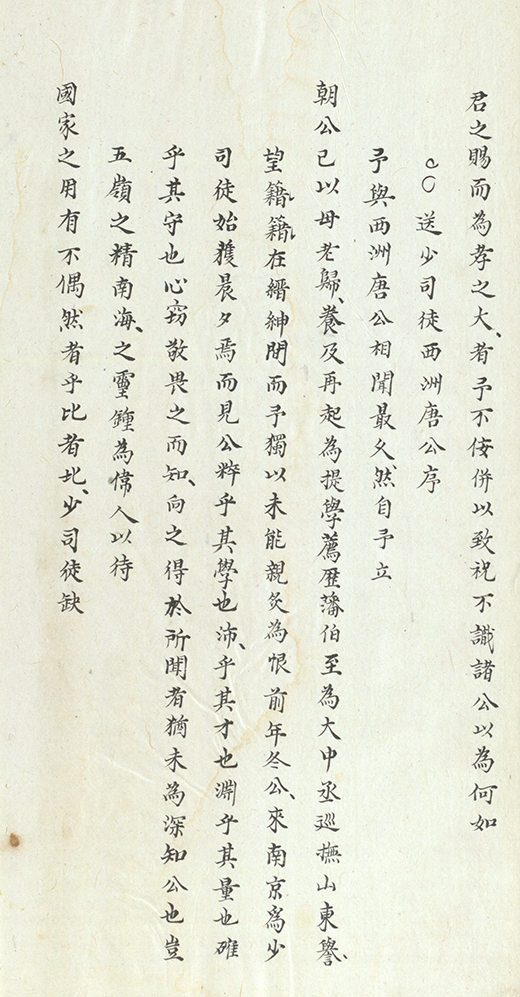 君之賜而為孝之大者予不佞併以致祝不識諸公以為何如
送少司徒西洲唐公序
予與西洲唐公相聞最久然自予立
朝公已以母老歸養及再起為提學薦歷藩伯至為大中丞巡撫山東譽
望籍籍在縉紳間而予獨以未能親炙為恨前年冬公來南京為少
司徒始獲晨夕焉而見公粹乎其學也沛乎其才也淵乎其量也確
乎其守也心竊敬畏之而知向之得於所聞者猶未為深知公也豈
五嶺之精南海之靈鍾為偉人以待
國家之用有不偶然者乎比者北少司徒缺